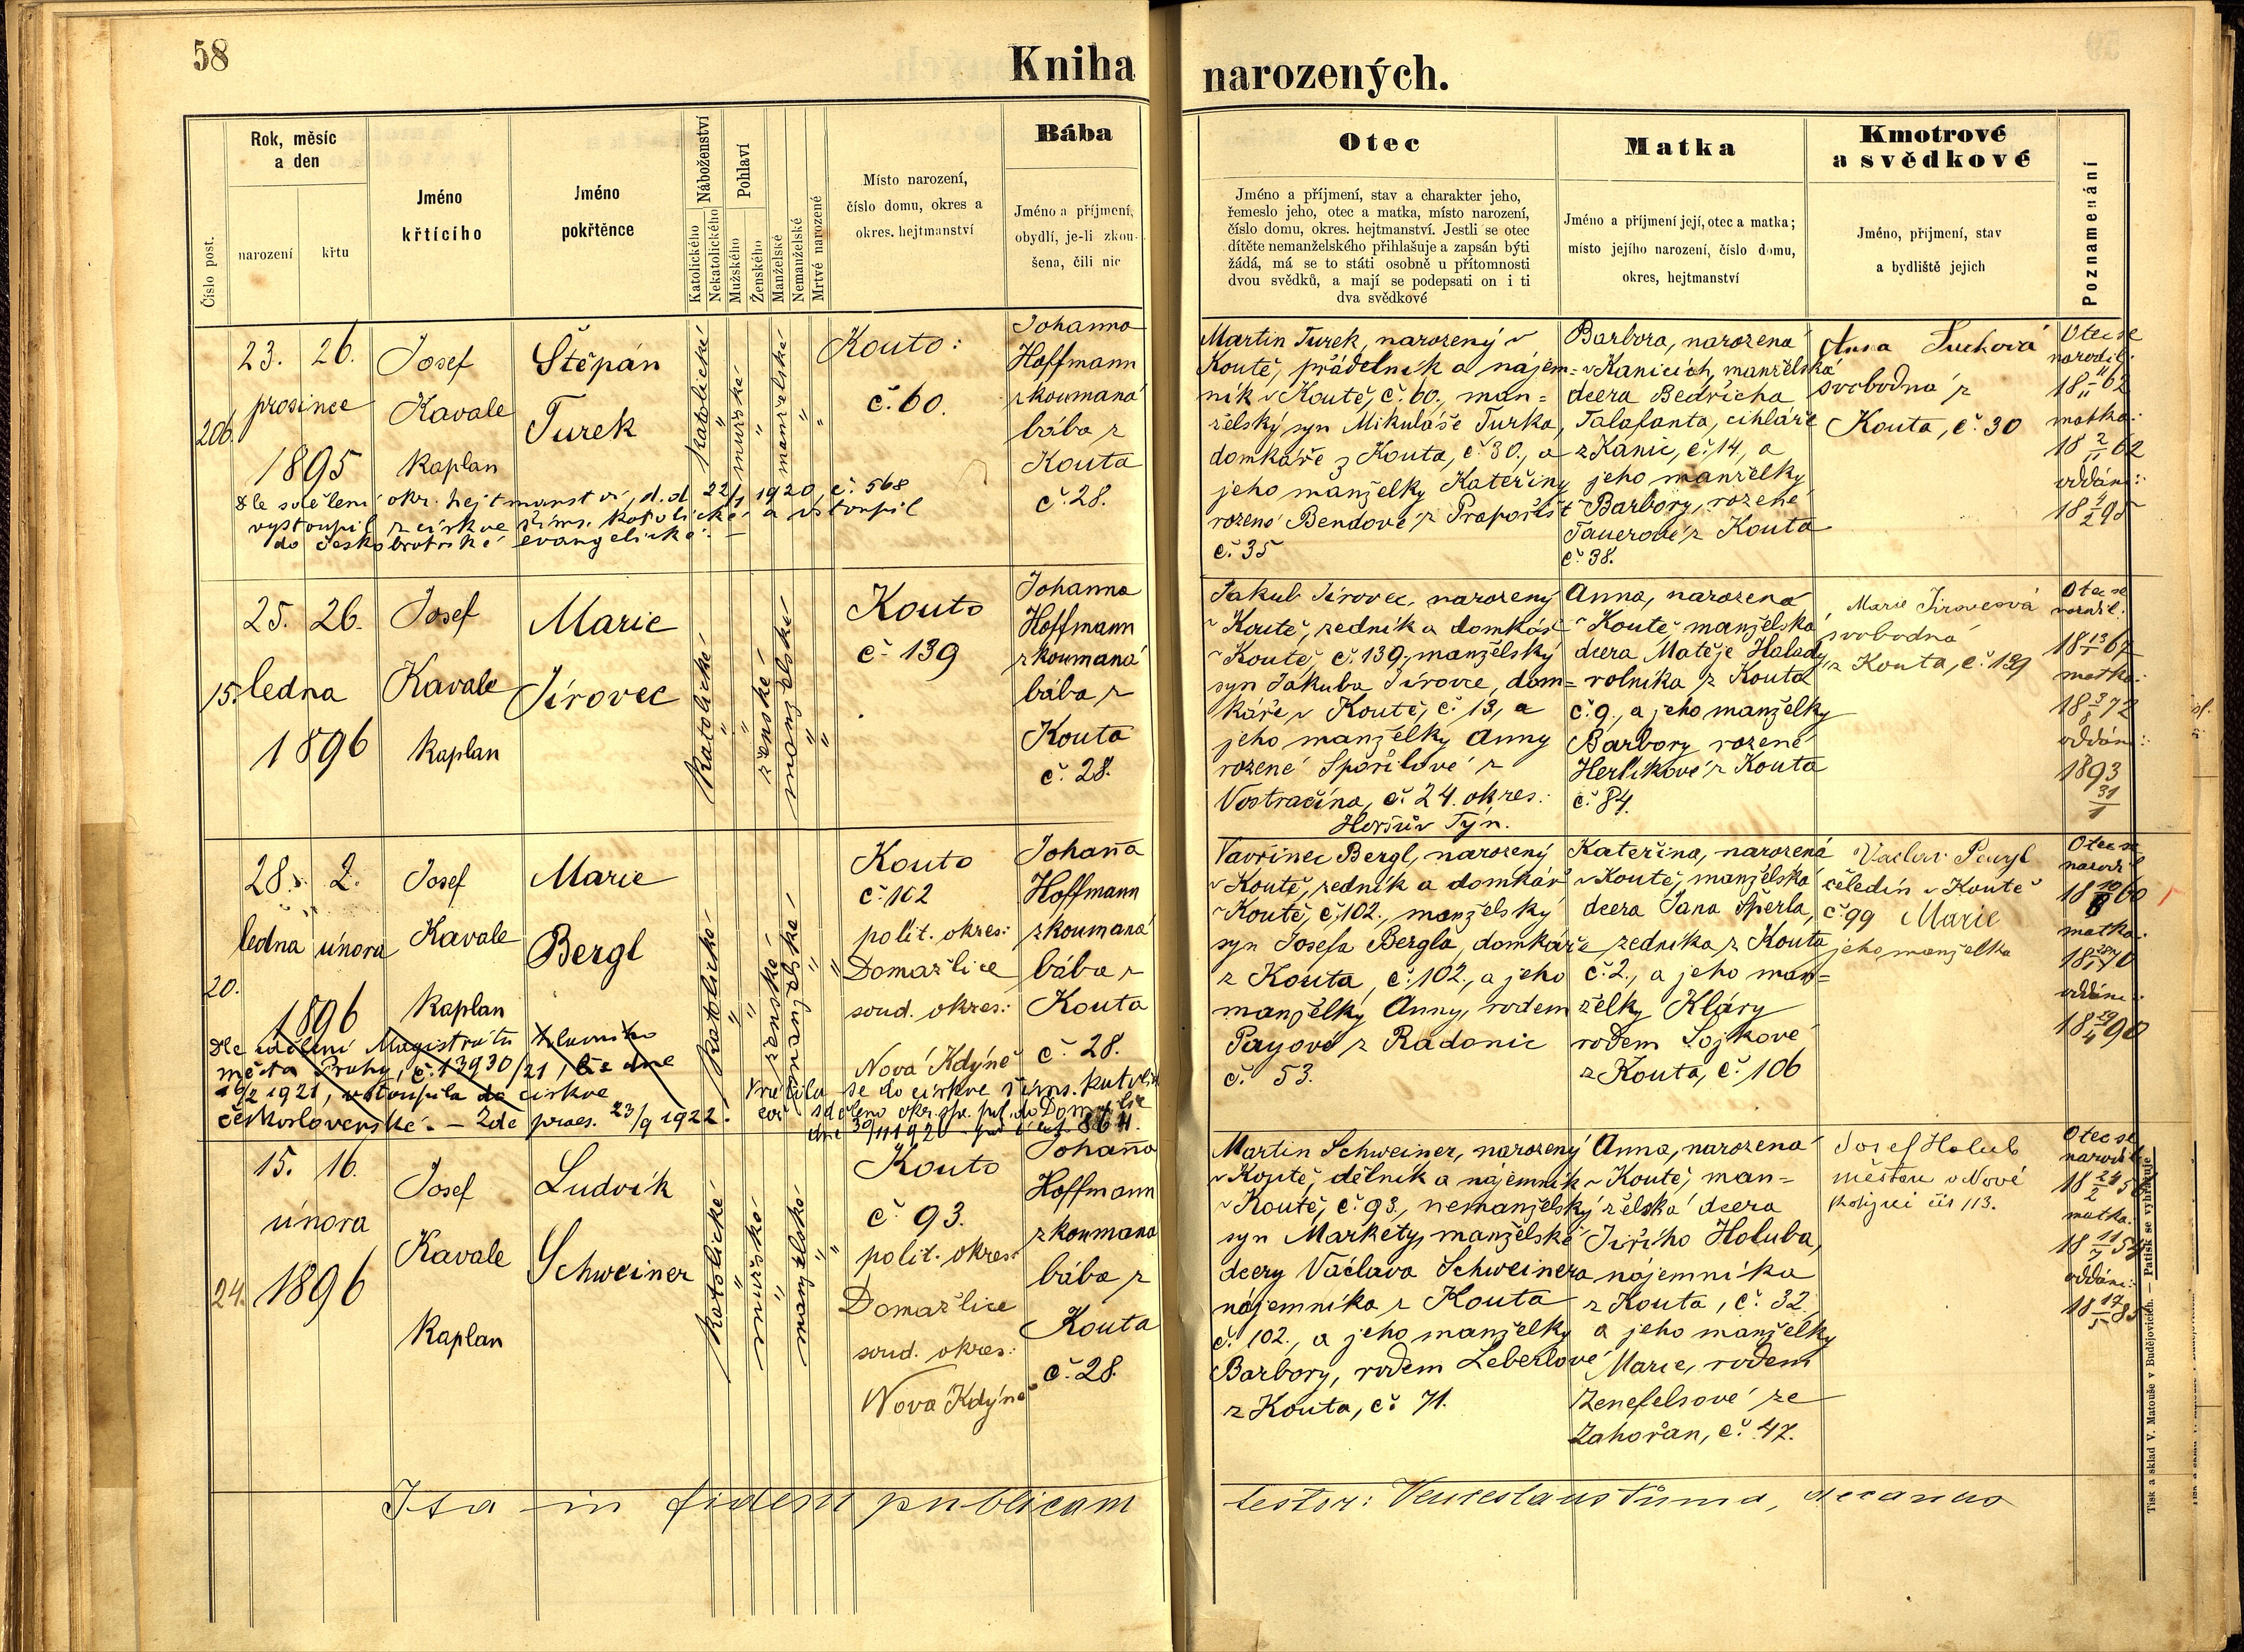 58
Kniha narozených.
Číslo post.
Rok, měsíc
a den
narození
křtu
Jméno
křtícího
Jméno
pokřtěnce
Náboženství
Katolického
Nekatolického
Pohlaví
Mužského
Ženského
Manželské
Nemanželské
Mrtvě narozené
Místo narození,
číslo domu, okres a
okres. hejtmanství
Bába
Jméno a příjmení,
obydlí, je-li zkou-
šena, čili nic
Otec
Jméno a příjmení, stav a charakter jeho,
řemeslo jeho, otec a matka, místo narození,
číslo domu, okres. hejtmanství. Jestli se otec
dítěte nemanželského přihlašuje a zapsán býti
žádá, má se to státi osobně u přítomnosti
dvou svědků, a mají se podepsati on i ti
dva svědkové
Matka
Jméno a příjmení její, otec a matka;
místo jejího narození, číslo domu,
okres, hejtmanství
Kmotrové
a svědkové
Jméno, příjmení, stav
a bydliště jejich
Poznamenání
206.
23. 26.
prosince
1895
Josef
Kavale
Kaplan
Štěpán
Turek
katolické
mužské
manželské
Kouto:
č. 60.
Johanna
Hoffmann
zkoumaná
bába z
Kouta
č. 28.
Dle sdělení okr. hejtmanství, d.d. 22/1 1920, č. 568
vystoupil z církve řims. katolické a vstoupil
do českobratrské evangelické. —
Martin Turek, narozený v
Koutě, přádelník a nájem=
ník v Koutě, č. 60., man=
želský syn Mikuláše Turka,
domkáře z Kouta, č. 30., a
jeho manželky Kateřiny
rozené Bendové z Prapořišť
č. 35
Barbora, narozená
v Kanicích, manželská
dcera Bedřicha
Talafanta, cihláře
z Kanic, č. 14, a
jeho manželky
Barbory, rozené
Tauerové z Kouta
č. 38.
Anna Turková
svobodná z
Kouta, č. 30
Otec se
narodil:
18 11/11 62
matka:
18 2/11 62
oddáni:
18 4/2 95
15.
25. 26.
ledna
1896
Josef
Kavale
Kaplan
Marie
Jírovec
katolické
ženské
manželské
Kouto
č. 139
Johanna
Hoffmann
zkoumaná
bába z
Kouta
č. 28.
Jakub Jírovec, narozený
v Koutě, zedník a domkář
v Koutě, č. 139, manželský
syn Jakuba Jírovce, dom=
káře v Koutě, č. 13, a
jeho manželky Anny
rozené Spořilové z
Vostračína, č. 24. okres:
Horšův Týn.
Anna, narozená
v Koutě, manželská
dcera Matěje Halady,
rolníka z Kouta
č. 9., a jeho manželky
Barbory rozené
Herlíkové z Kouta
č. 84.
Marie Jírovcová
svobodná
z Kouta, č. 139
Otec se
narodil:
18 13/1 67
matka:
18 3/8 72
oddáni:
1893
31/1
20.
28. 2.
ledna února
1896
Josef
Kavale
Kaplan
Marie
Bergl
katolické
ženské
manželské
Kouto
č. 102
polit. okres:
Domažlice
soud. okres:
Nová Kdýně
Johanna
Hoffmann
zkoumaná
bába z
Kouta
č. 28.
Dle sdělení Magistrátu hlavního
města Prahy, č. 13930/21, ze dne
19/2 1921, vstoupila do církve
československé. — Zde praes. 23/9 1922.
Vrátila se do církve řims. katolic
což sděleno okr. spr. pol. do Domažlic
dne 30/11 1926 pod č. 864.
Vavřinec Bergl, narozený
v Koutě, zedník a domkář
v Koutě, č. 102., manželský
syn Josefa Bergla, domkáře
z Kouta, č. 102., a jeho
manželky Anny, rodem
Payové z Radonic
č. 53.
Kateřina, narozená
v Koutě, manželská
dcera Jana Šperla,
zedníka z Kouta
č. 2., a jeho man=
želky Kláry
rodem Lojkové
z Kouta, č. 106
Vaclav
čeledín v Koutě
č. 99 Marie
jeho manželka
Otec se
narodil
18 10/8 60
matka:
oddáni:
18 29/4 90
24.
15. 16.
února
1896
Josef
Kavale
Kaplan
Ludvík
Schweiner
katolické
mužské
manželské
Kouto
č. 93.
polit. okres:
Domažlice
soud. okres:
Nová Kdýně
Johanna
Hoffmann
zkoumana
bába z
Kouta
č. 28.
Martin Schweiner, narozený
v Koutě, dělník a nájemník
v Koutě, č. 93., nemanželský
syn Markéty, manželské
dcery Václava Schweinera
nájemníka z Kouta
č. 102., a jeho manželky
Barbory, rodem Leberlové
z Kouta, č. 71.
Anna, narozená
v Koutě, man=
želská dcera
Jiřího Holuba,
nájemníka
z Kouta, č. 32.,
a jeho manželky
Marie, rodem
Zenefelsové ze
Zahořan, č. 47.
Josef Holub
měšťan v Nové
Kdýni čís 113.
Otec se
narodil
matka:
oddáni:
18 17/5 85
Ita in fidem publicam
testor: Venceslaus Tůma, decanus
Tisk a sklad V. Matouše v Budějovicích. — Patisk se vyhražuje.